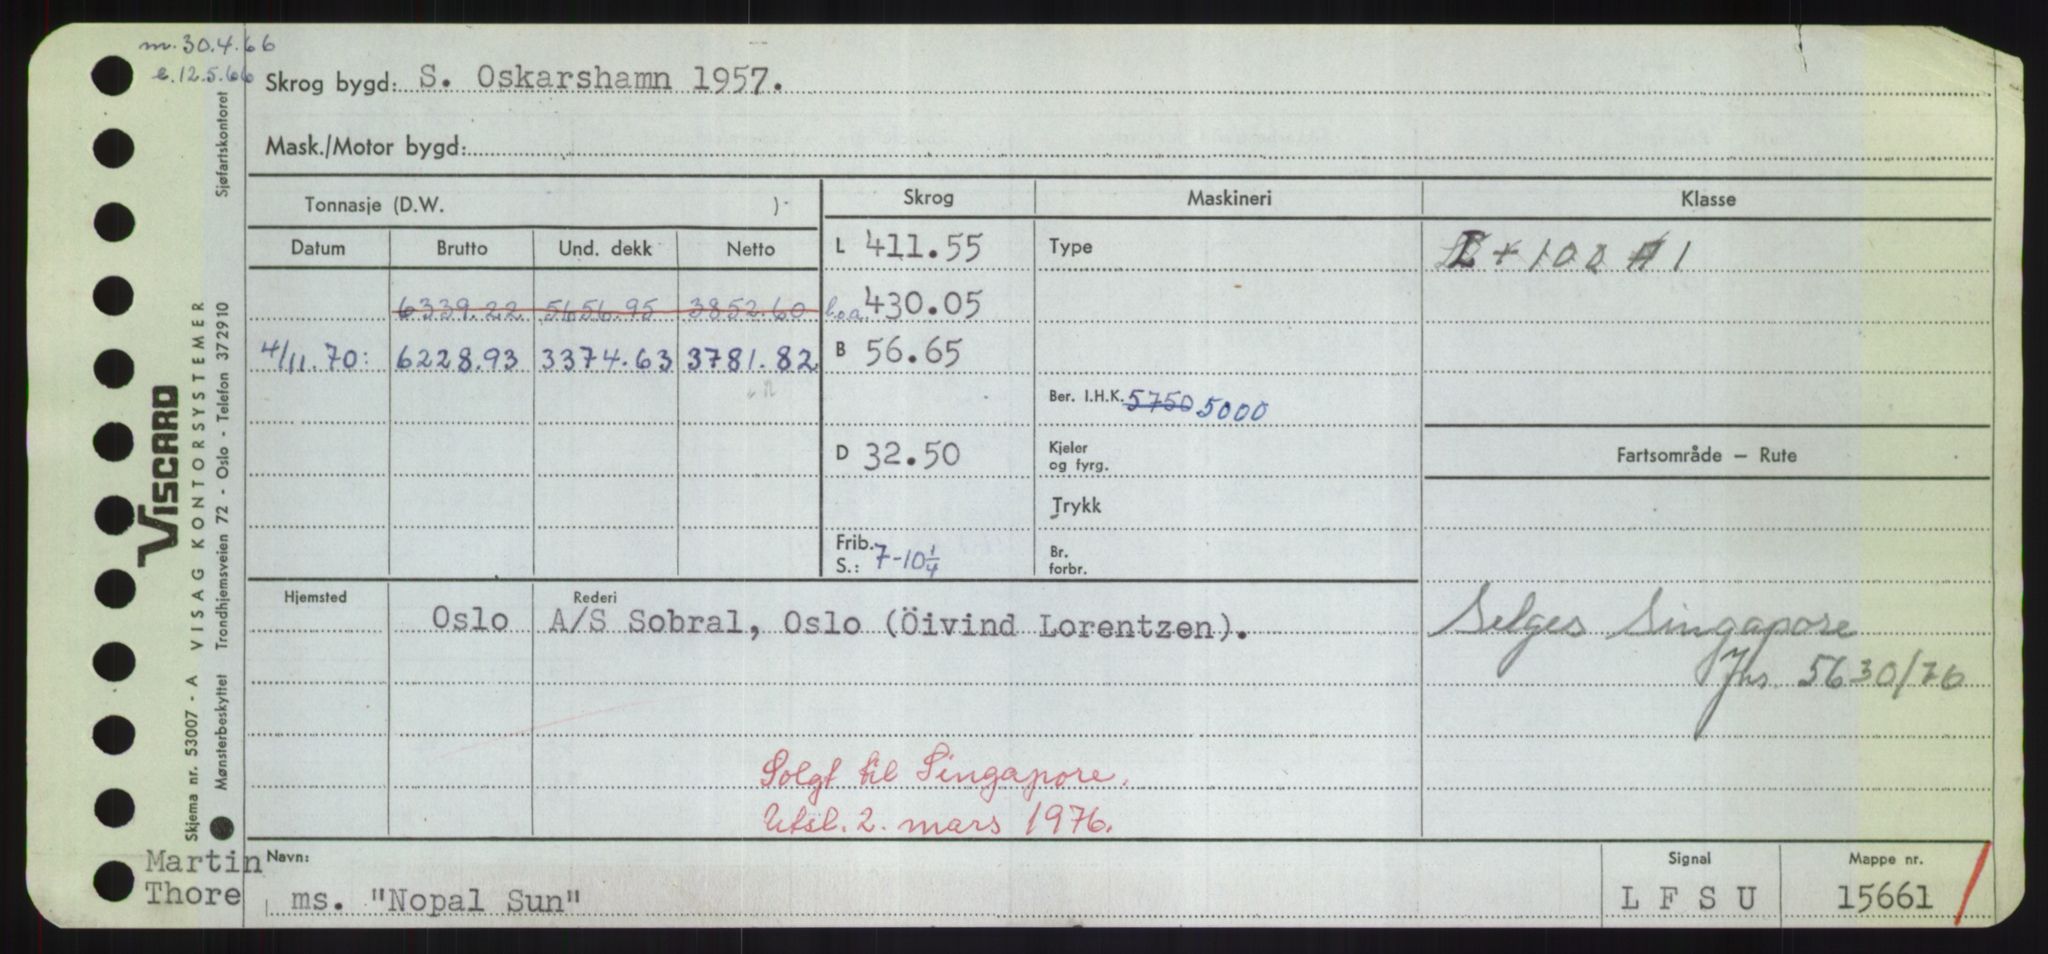 m. 30.4.66
e. 12.5.66
Skrog bygd: S. Oskarshamn 1957.
Mask./Motor bygd:
Tonnasje (D.W. )
Skrog
Maskineri
Klasse
Datum Brutto Und. dekk Netto
L 411.55
Type
+ 100 A 1
6339.22 5656.95 3852.60
l.o.a. 430.05
4/11.70: 6228.93 3374.63 3781.82
B 56.65
Ber. I.H.K. 5750 5000
D 32.50
Kjeler
og fyrg.
Fartsområde — Rute
Trykk
Frib.
S.: 7-10 1/4
Br.
forbr.
Hjemsted
Rederi
Oslo A/S Sobral, Oslo (Öivind Lorentzen).
Selges Singapore
Jns. 5630/76
Solgt til Singapore.
Utsl. 2. mars 1976.
Martin
Thore
Navn:
ms. "Nopal Sun"
Signal
L F S U
Mappe nr.
15661
VISCARD
Skjema nr. 53007 - A VISAG KONTORSYSTEMER
Mønsterbeskyttet Trondhjemsveien 72 - Oslo - Telefon 372910
Sjøfartskontoret